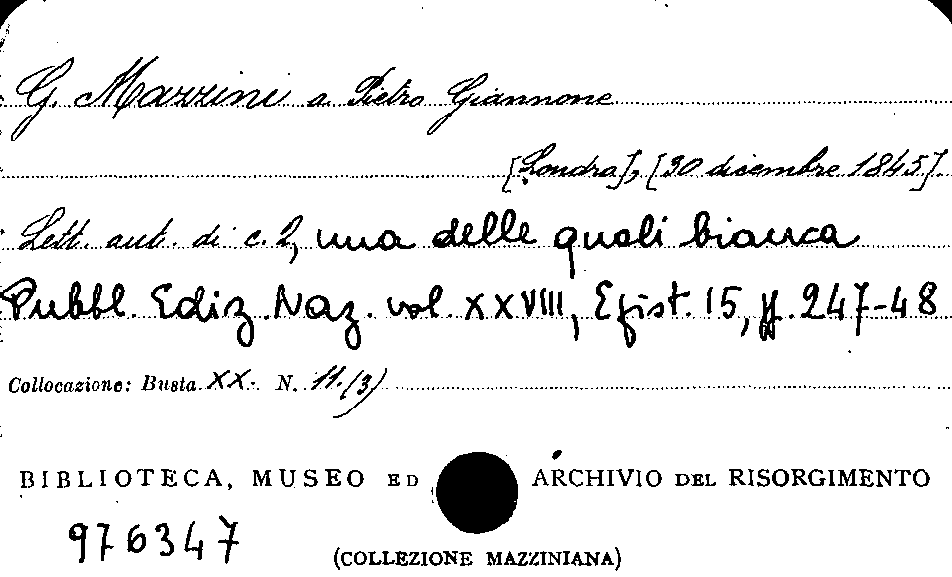 G. Mazzini a Pietro Giannone
[Londra], [30 dicembre 1845].
Lett. aut. di c. 2, una delle quali bianca
Pubbl. Ediz. Naz. vol. XXVIII, Epist. 15, p. 247-48
Collocazione: Busta XX. N. 11.(3)
BIBLIOTECA, MUSEO ED ARCHIVIO DEL RISORGIMENTO
976347
(COLLEZIONE MAZZINIANA)